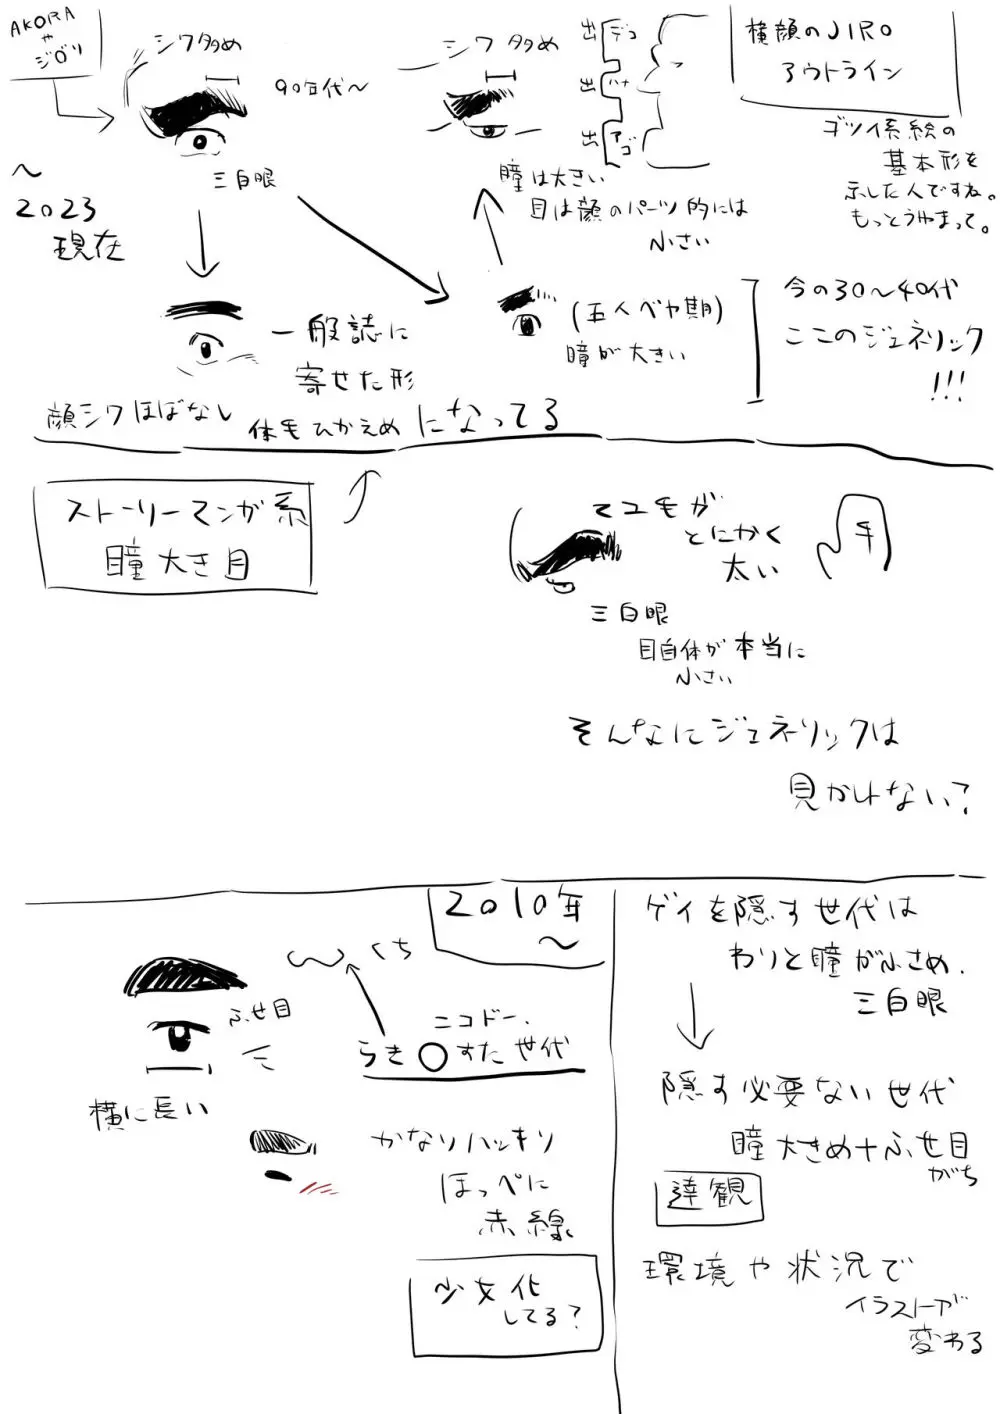 AKORA
や
ジロツ
シワ多め
90年代〜
三白眼
〜
2023
現在
シワ多め
出 デコ
出 ハナ
出 アゴ
瞳は大きい
目は顔のパーツ的には
小さい
横顔のJIRO
アウトライン
ゴツイ系絵の
基本形を
示した人ですね。
もっとうやまって。
一般誌に
寄せた形
(五人ベヤ期)
瞳が大きい
今の30〜40代
ここのジェネリック
!!!
顔シワほぼなし
体毛ひかえめになってる
ストーリーマンガ系
瞳大き目
マユ毛が
とにかく
太い
手
三白眼
目自体が本当に
小さい
そんなにジェネリックは
見かけない?
2010年
〜
くち
ふせ目
ニコドー、
らき○すた世代
横に長い
かなりハッキリ
ほっぺに
赤線
少女化
してる?
ゲイを隠す世代は
わりと瞳が小さめ、
三白眼
隠す必要ない世代
瞳大きめ+ふせ目
がち
達観
環境や状況で
イラストーが
変わる